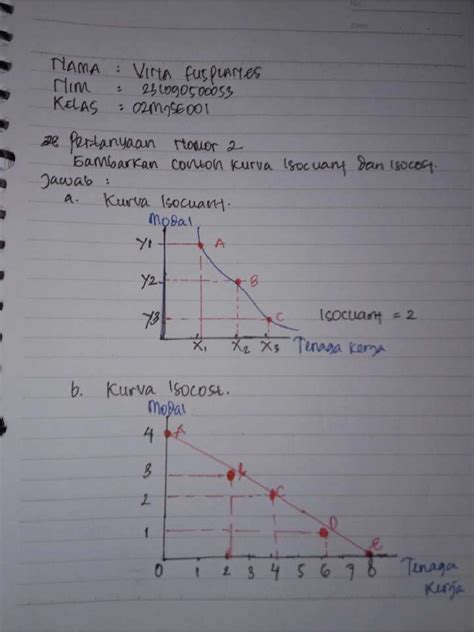 NAMA :
NIM :
KELAS : 02MJSE001
Pertanyaan Nomor 2
Gambarkan contoh kurva Isocuant dan Isocost.
Jawab :
a. Kurva Isocuant.
Modal
Y1
A
Y2
B
Y3
C
Isocuant = 2
X1 X2 X3 Tenaga kerja
b. Kurva Isocost.
Modal
4 A
3 B
2 C
1 D
E
0 1 2 3 4 5 6 7 8 Tenaga
kerja